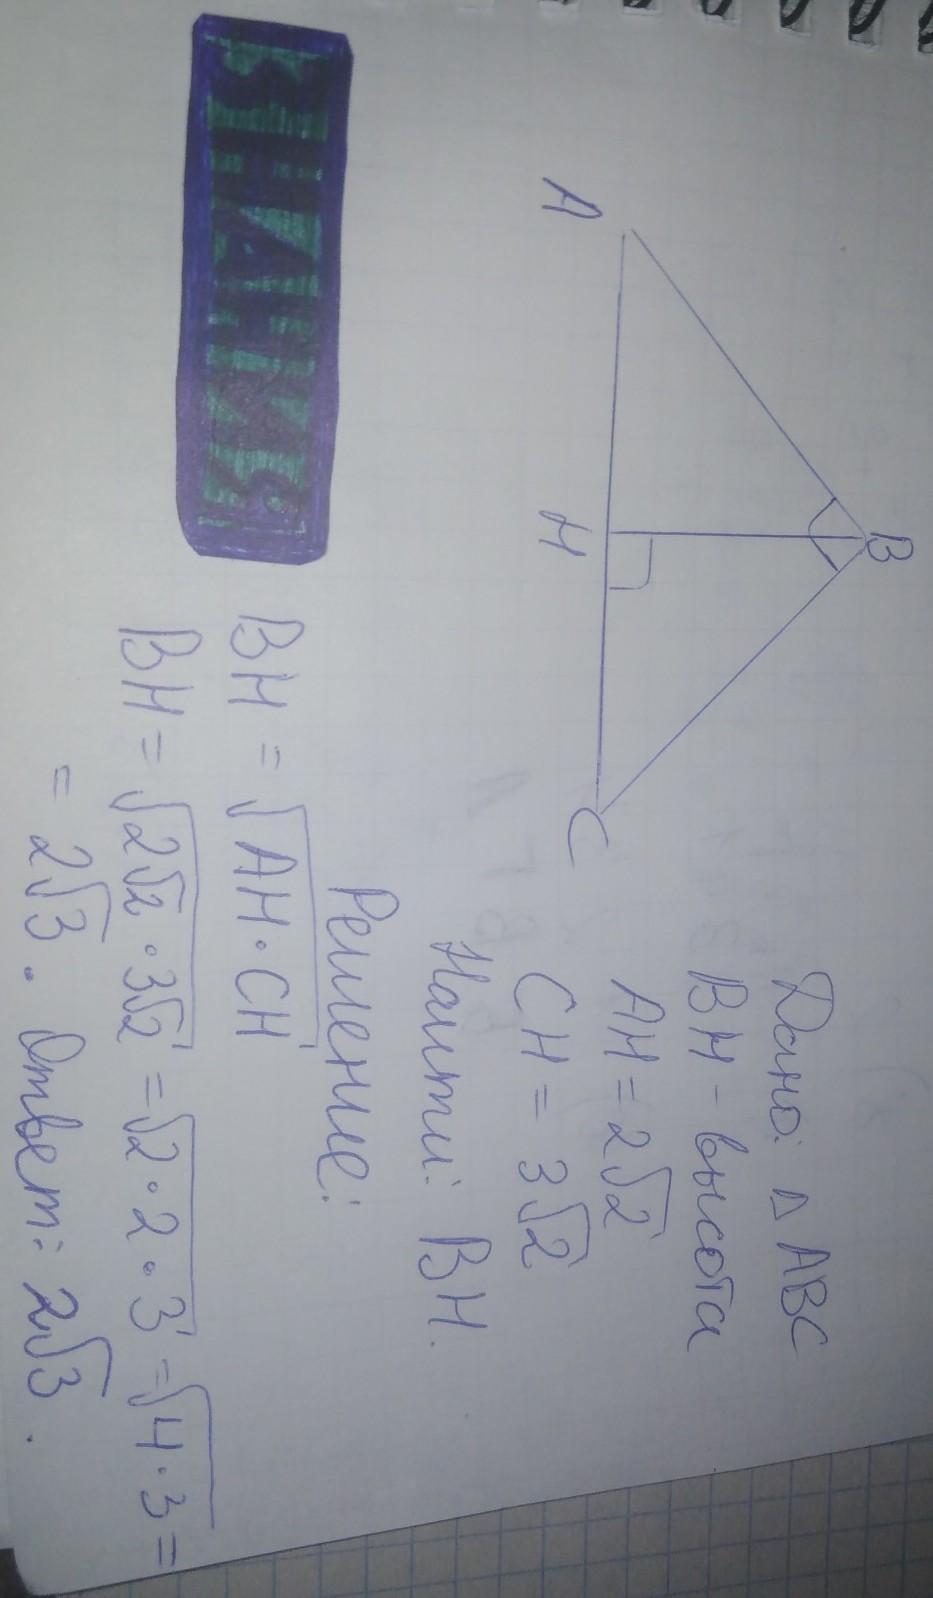 B
A
H
C
Дано: △ ABC
BH - высота
AH = 2√2
CH = 3√2
Найти: BH.
Решение:
ЗНАНИЯ
BH = √AH · CH
BH = √2√2 · 3√2 = √2 · 2 · 3 = √4 · 3 =
= 2√3. Ответ: 2√3.